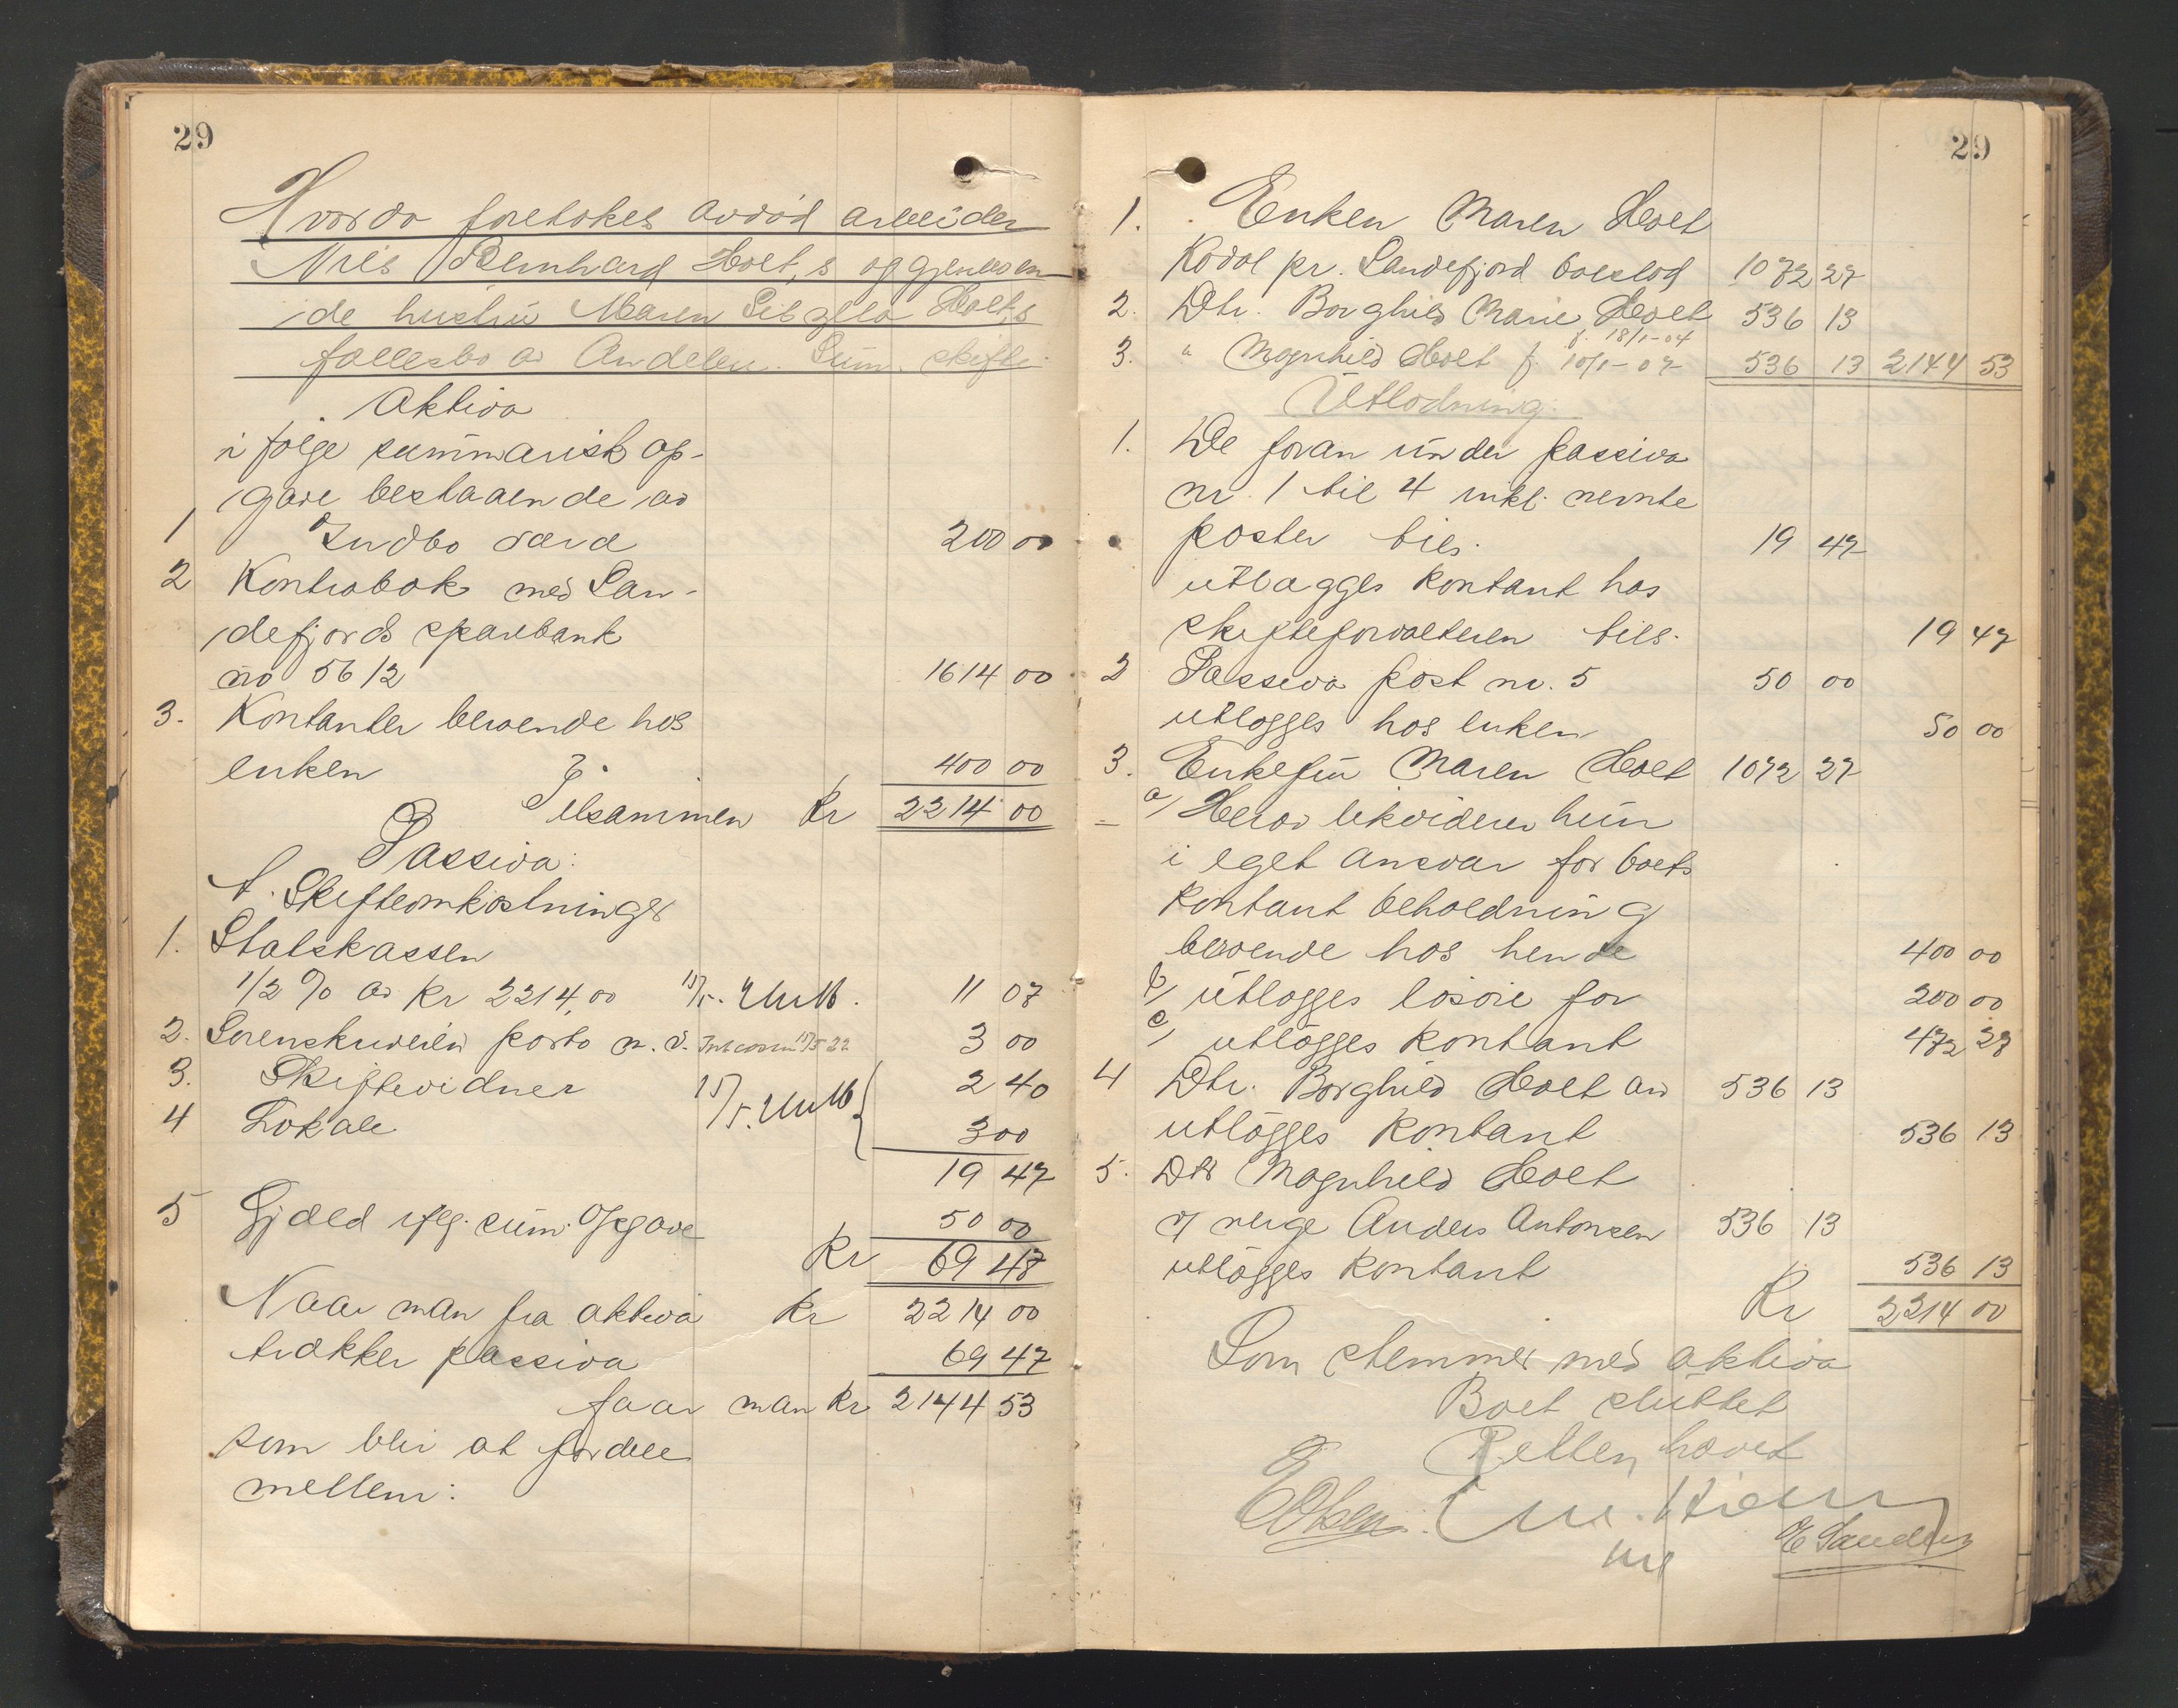 29
Hvorda foretokes avdød arbeider
Nils Bernhard Holt,s og gjenleven-
de hustru Maren Sibylla Holt,s
fællesbo av Andelen. Sum. skifte.
Aktiva
i følge summarisk op-
gave bestaaende av
1 Indbo værd 200 00
2 Kontrabok med San-
defjords sparebank
no 5612 1614 00
3. Kontanter beroende hos
enken 400 00
Tilsammen Kr 2214 00
Passiva:
A. Skifteomkostninger
1. Statskassen
1/2 % av Kr 2214,00 15/5. 11 07
2. Sorenskriveren porto m. v. 15/5 22 3 00
3. Skiftevidner 15/5. 2 40
4 Lokale 3 00
19 47
5 Gjæld iflg. sum. Opgave 50 00
Kr 69 47
Naar man fra aktiva Kr 2214 00
trækker passiva 69 47
faar man Kr 2144 53
som blir at fordele
mellem:
29
1. Enken Maren Holt
Kodal pr. Sandefjord boeslod 1072 27
2. Dtr. Borghild Marie Holt 536 13
f. 18/1-04
3. " Magnhild Holt f. 10/1-07 536 13 2144 53
Utlodning:
1. De foran under passiva
nr. 1 til 4 inkl. nevnte
poster tils. 19 47
utlægges kontant hos
skifteforvalteren tils. 19 47
2 Passiva post nr. 5 50 00
utlægges hos enken 50 00
3. Enkefru Maren Holt 1072 27
a/ Herav likviderer hun
i eget ansvar for boets
kontant beholdning
beroende hos hende 400 00
b/ utlægges løsøre for 200 00
c/ utlægges kontant 472 27
4 Dtr. Borghild Holt av 536 13
utlægges kontant 536 13
5. Dtr Magnhild Holt
v/ verge Anders Antonsen 536 13
utlægges kontant 536 13
Kr 2214 00
Som stemmer med aktiva
Boet sluttet
Retten hævet